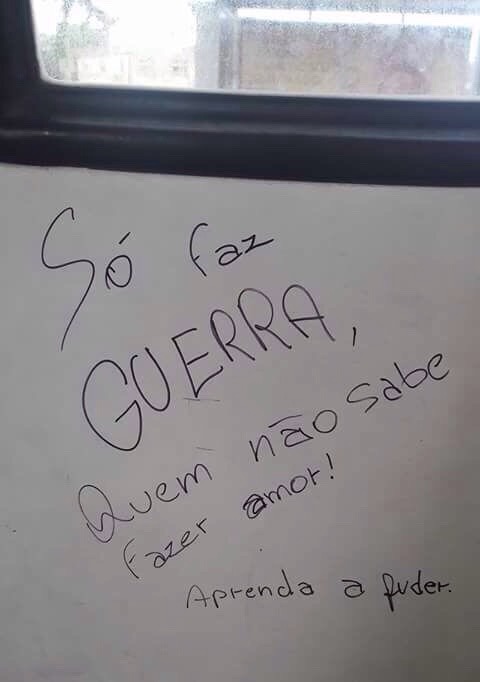 Só faz
GUERRA,
Quem não sabe
fazer amor!
Aprenda a fuder.